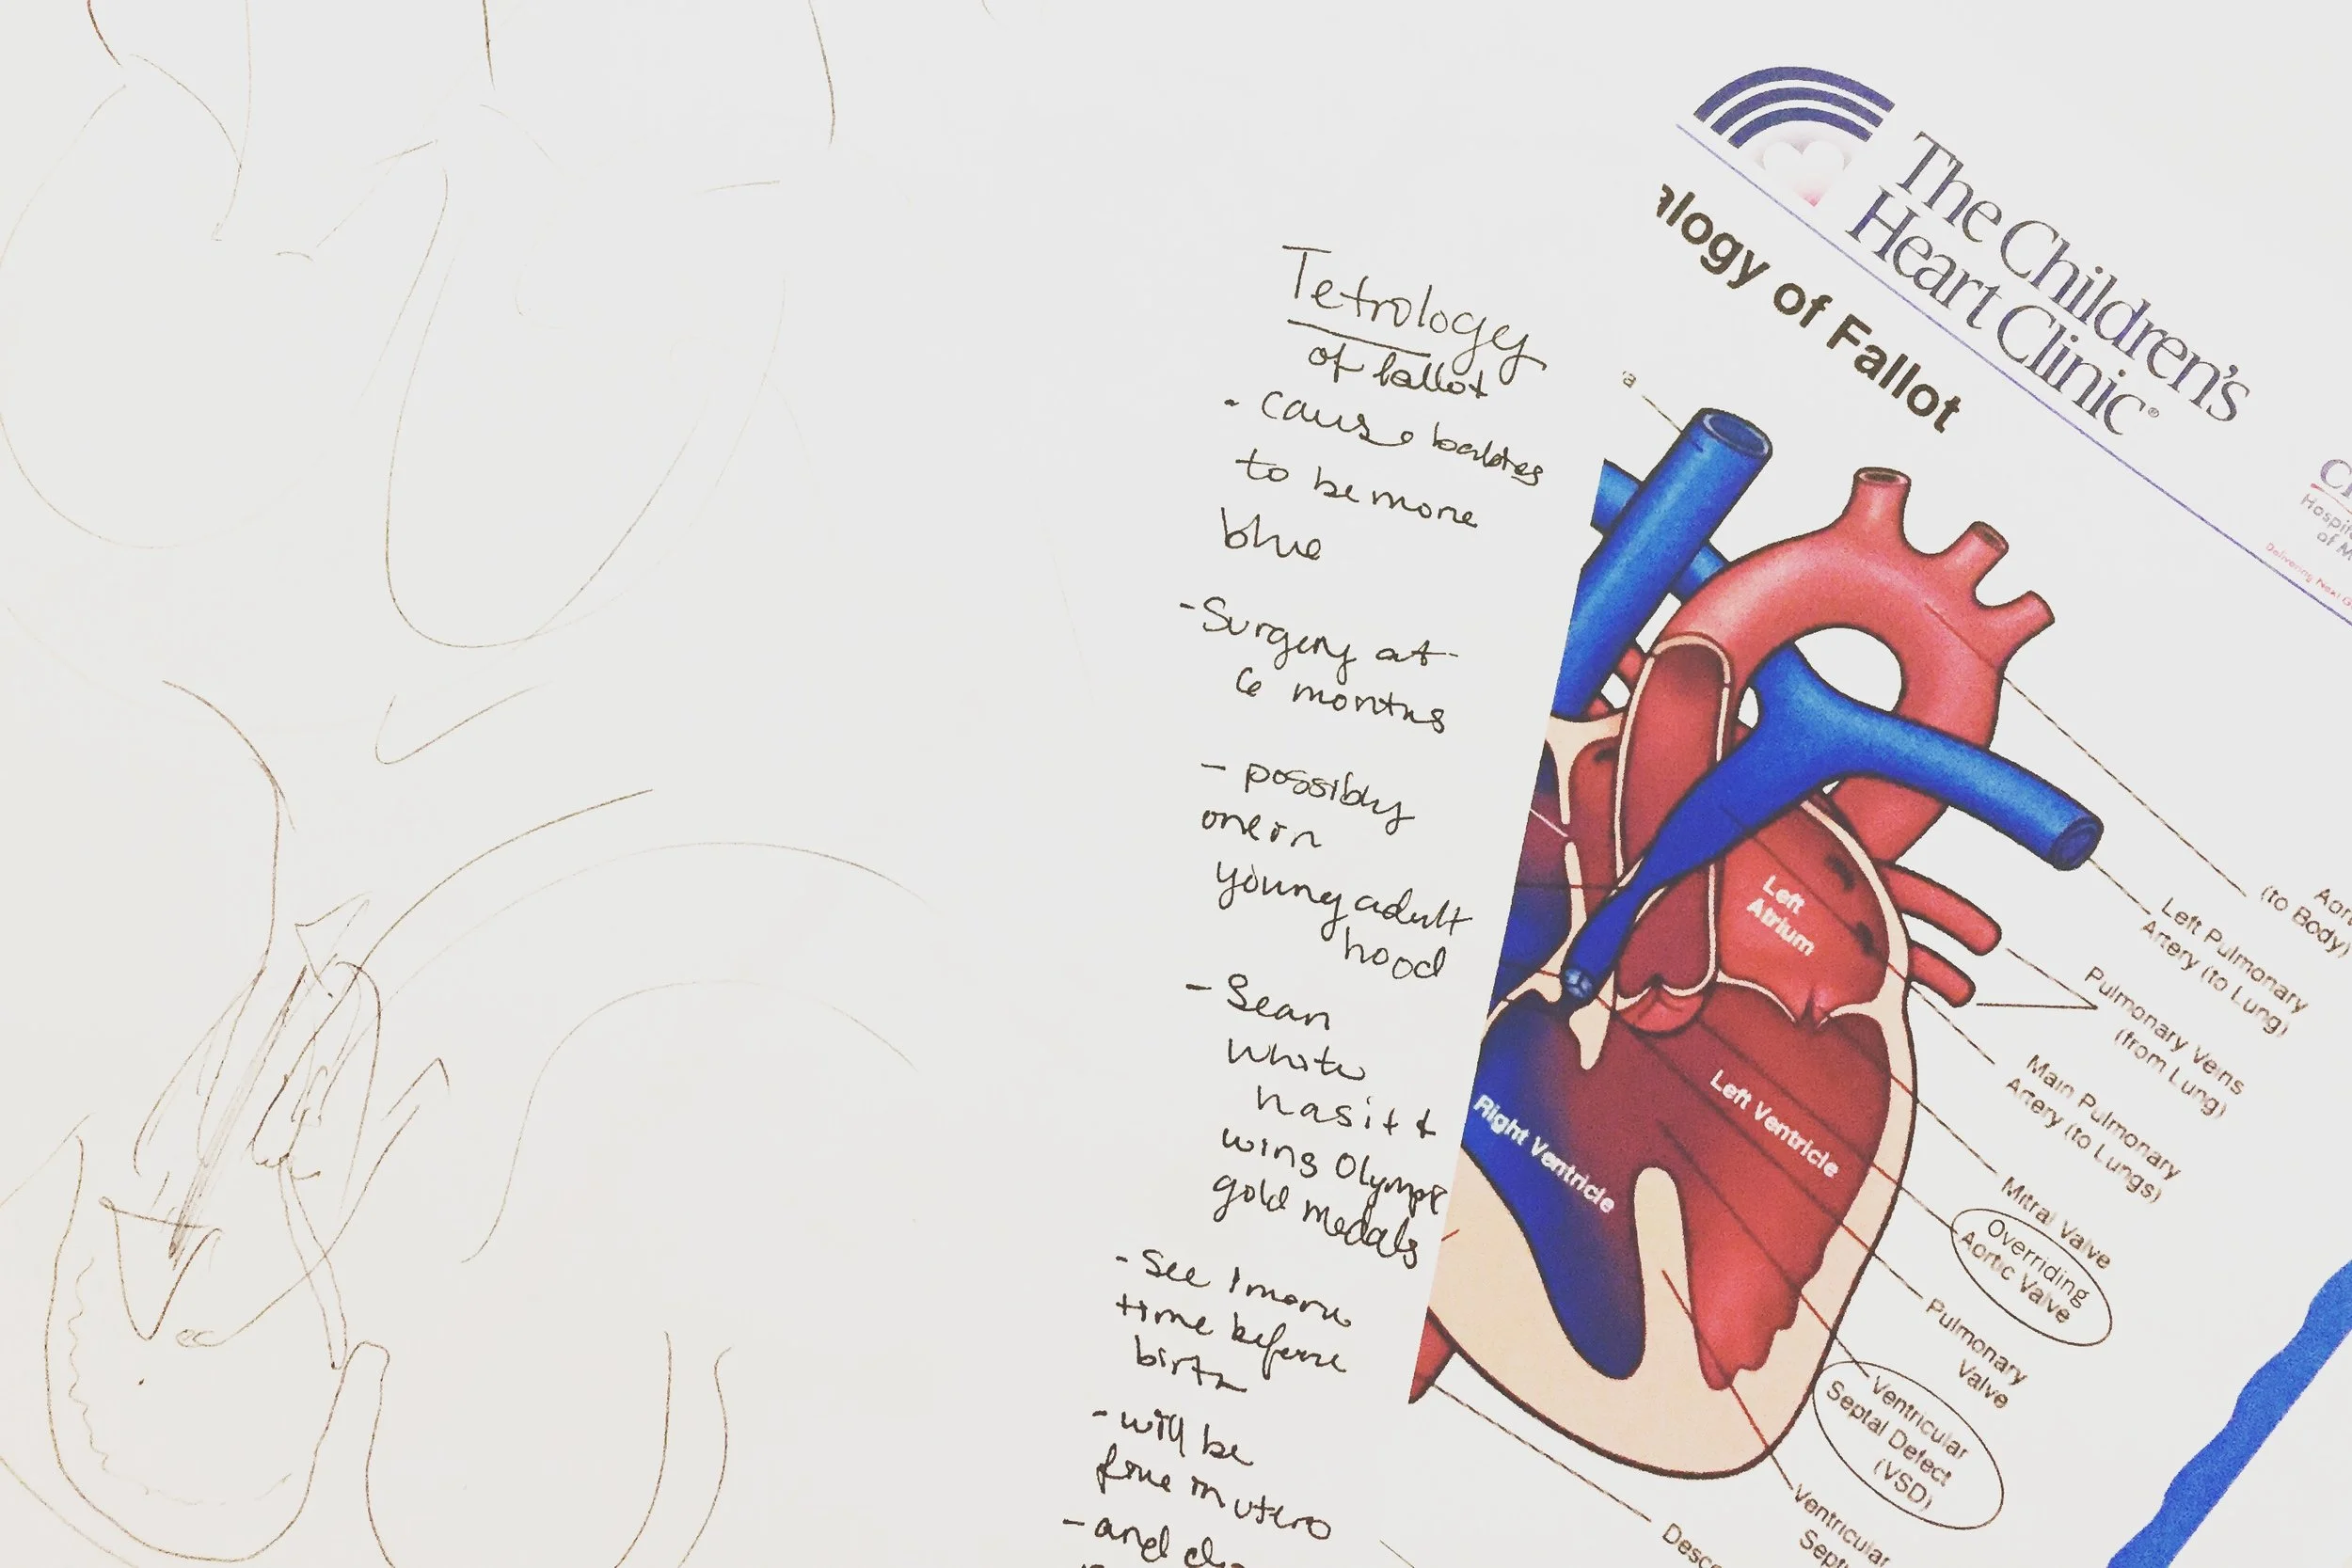 Tetrology
of fallot
- Cause babies
to be more
blue
- Surgery at
6 months
- possibly
one in
young adult
hood
- Sean
White
has it &
wins Olympic
gold medals
- See 1 more
time before
birth
- will be
fine in utero
- and
The Children's
Heart Clinic®
alogy of Fallot
Left
Atrium
Left Ventricle
Right Ventricle
(to Body)
Left Pulmonary
Artery (to Lung)
Pulmonary Veins
(from Lung)
Main Pulmonary
Artery (to Lungs)
Mitral Valve
Overriding
Aortic Valve
Pulmonary
Valve
Ventricular
Septal Defect
(VSD)
Ventricular